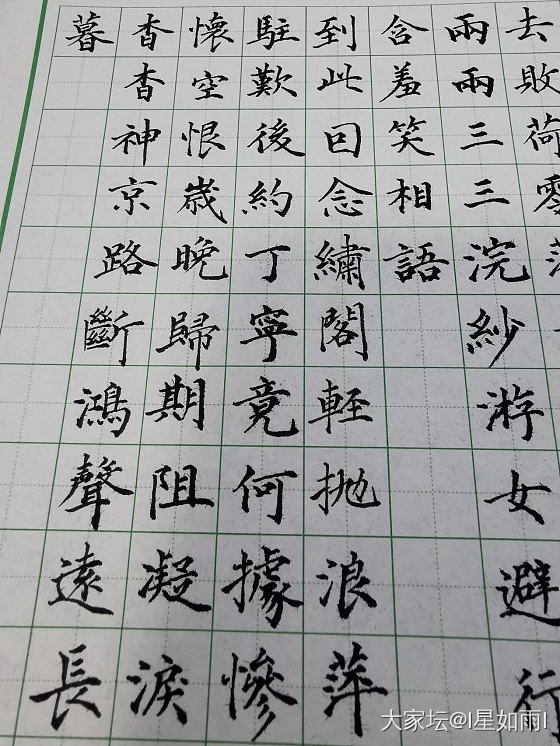 去敗荷零
兩兩三三浣紗游女避行
含羞笑相語
到此回念繡閣軽抛浪萍
駐歎後約丁寧竟何據慘
懷空恨歳晚歸期阻凝淚
杳杳神京路斷鴻聲遠長
暮
大家坛@I星如雨I